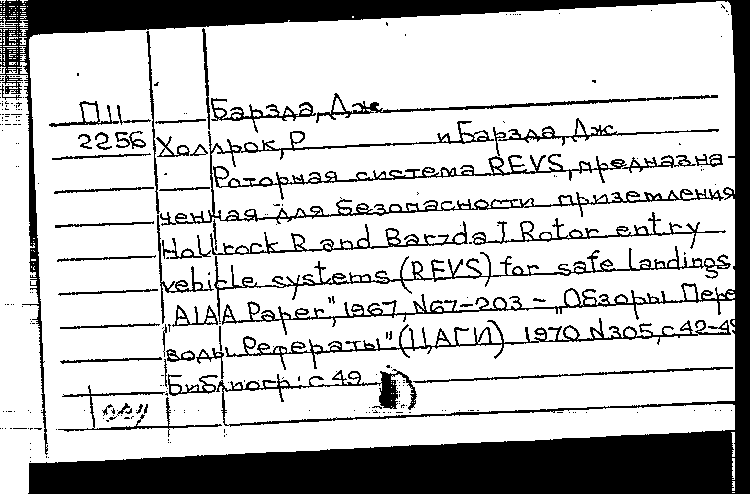 П11 Барзда, Дж
2256 Холлрок, Р и Барзда, Дж
Роторная система REVS, предназна-
ченная для безопасности приземления
Hollrock R and Barzda J. Rotor entry
vehicle systems (REVS) for safe landings.
"AIAA Paper", 1967, N67-203 - "Обзоры Пере
воды Рефераты" (ЦАГИ) 1970 N305, с.42-49
Библиогр: с 49